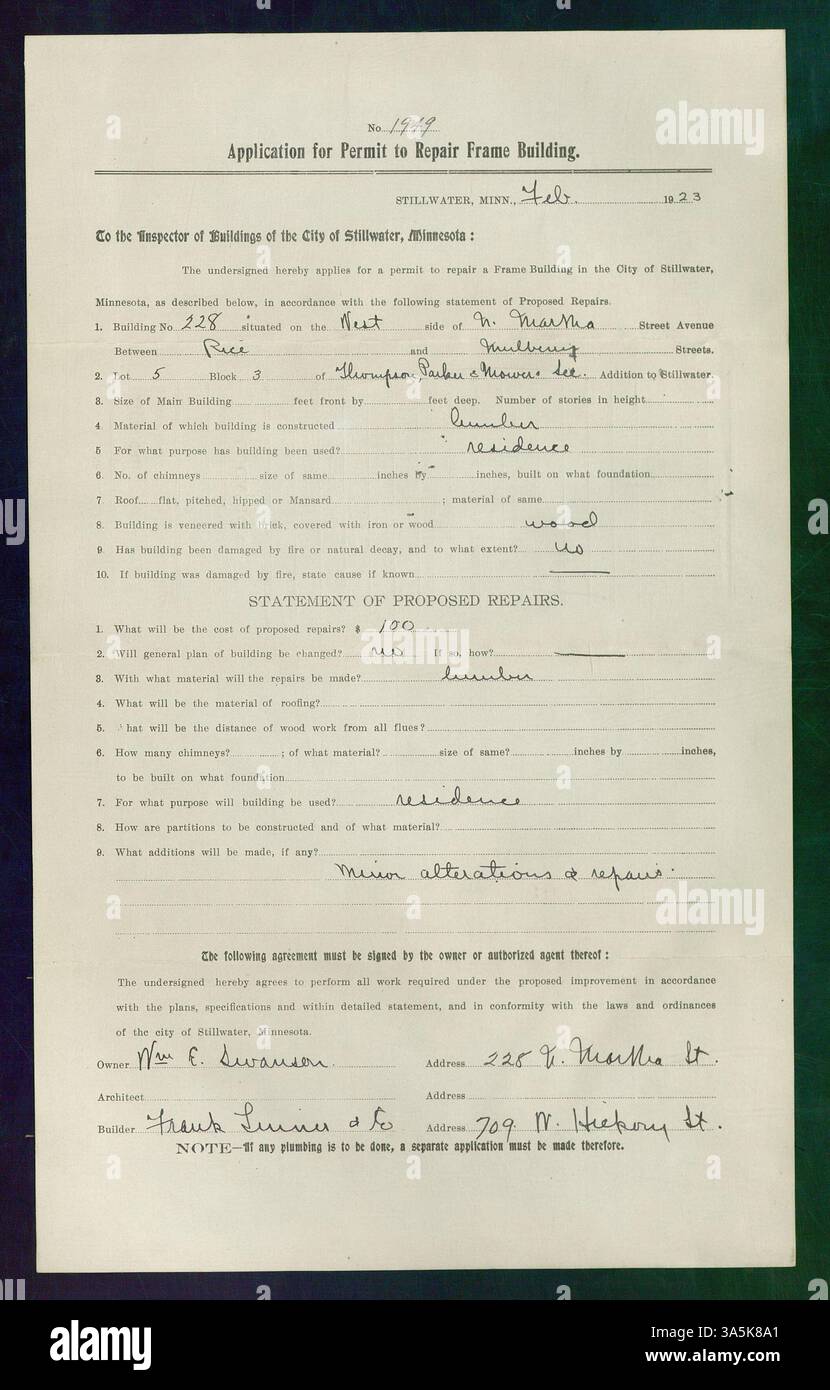 No. 1949
Application for Permit to Repair Frame Building.
STILLWATER, MINN., Feb. 1923
To the Inspector of Buildings of the City of Stillwater, Minnesota :
The undersigned hereby applies for a permit to repair a Frame Building in the City of Stillwater,
Minnesota, as described below, in accordance with the following statement of Proposed Repairs.
1. Building No 228 situated on the West side of N. Martha Street Avenue
Between Rice and Mulberry Streets.
2. Lot 5 Block 3 of Thompson, Parker & Mowers Sec. Addition to Stillwater.
3. Size of Main Building feet front by feet deep. Number of stories in height
4. Material of which building is constructed lumber
5 For what purpose has building been used? residence
6. No. of chimneys size of same inches by inches, built on what foundation
7. Roof flat, pitched, hipped or Mansard ; material of same
8. Building is veneered with brick, covered with iron or wood wood
9. Has building been damaged by fire or natural decay, and to what extent? no
10. If building was damaged by fire, state cause if known
STATEMENT OF PROPOSED REPAIRS.
1. What will be the cost of proposed repairs? $ 100
2. Will general plan of building be changed? no If so, how?
3. With what material will the repairs be made? lumber
4. What will be the material of roofing?
5. hat will be the distance of wood work from all flues?
6. How many chimneys? ; of what material? size of same? inches by inches,
to be built on what foundation
7. For what purpose will building be used? residence
8. How are partitions to be constructed and of what material?
9. What additions will be made, if any?
Minor alterations & repairs.
The following agreement must be signed by the owner or authorized agent thereof :
The undersigned hereby agrees to perform all work required under the proposed improvement in accordance
with the plans, specifications and within detailed statement, and in conformity with the laws and ordinances
of the city of Stillwater, Minnesota.
Owner Wm E. Swanson Address 228 N. Martha St.
Architect Address
Builder Frank Linner & Co Address 709 W. Hickory St.
NOTE—If any plumbing is to be done, a separate application must be made therefore.
alamy
Image ID: 3A5K8A1
www.alamy.com